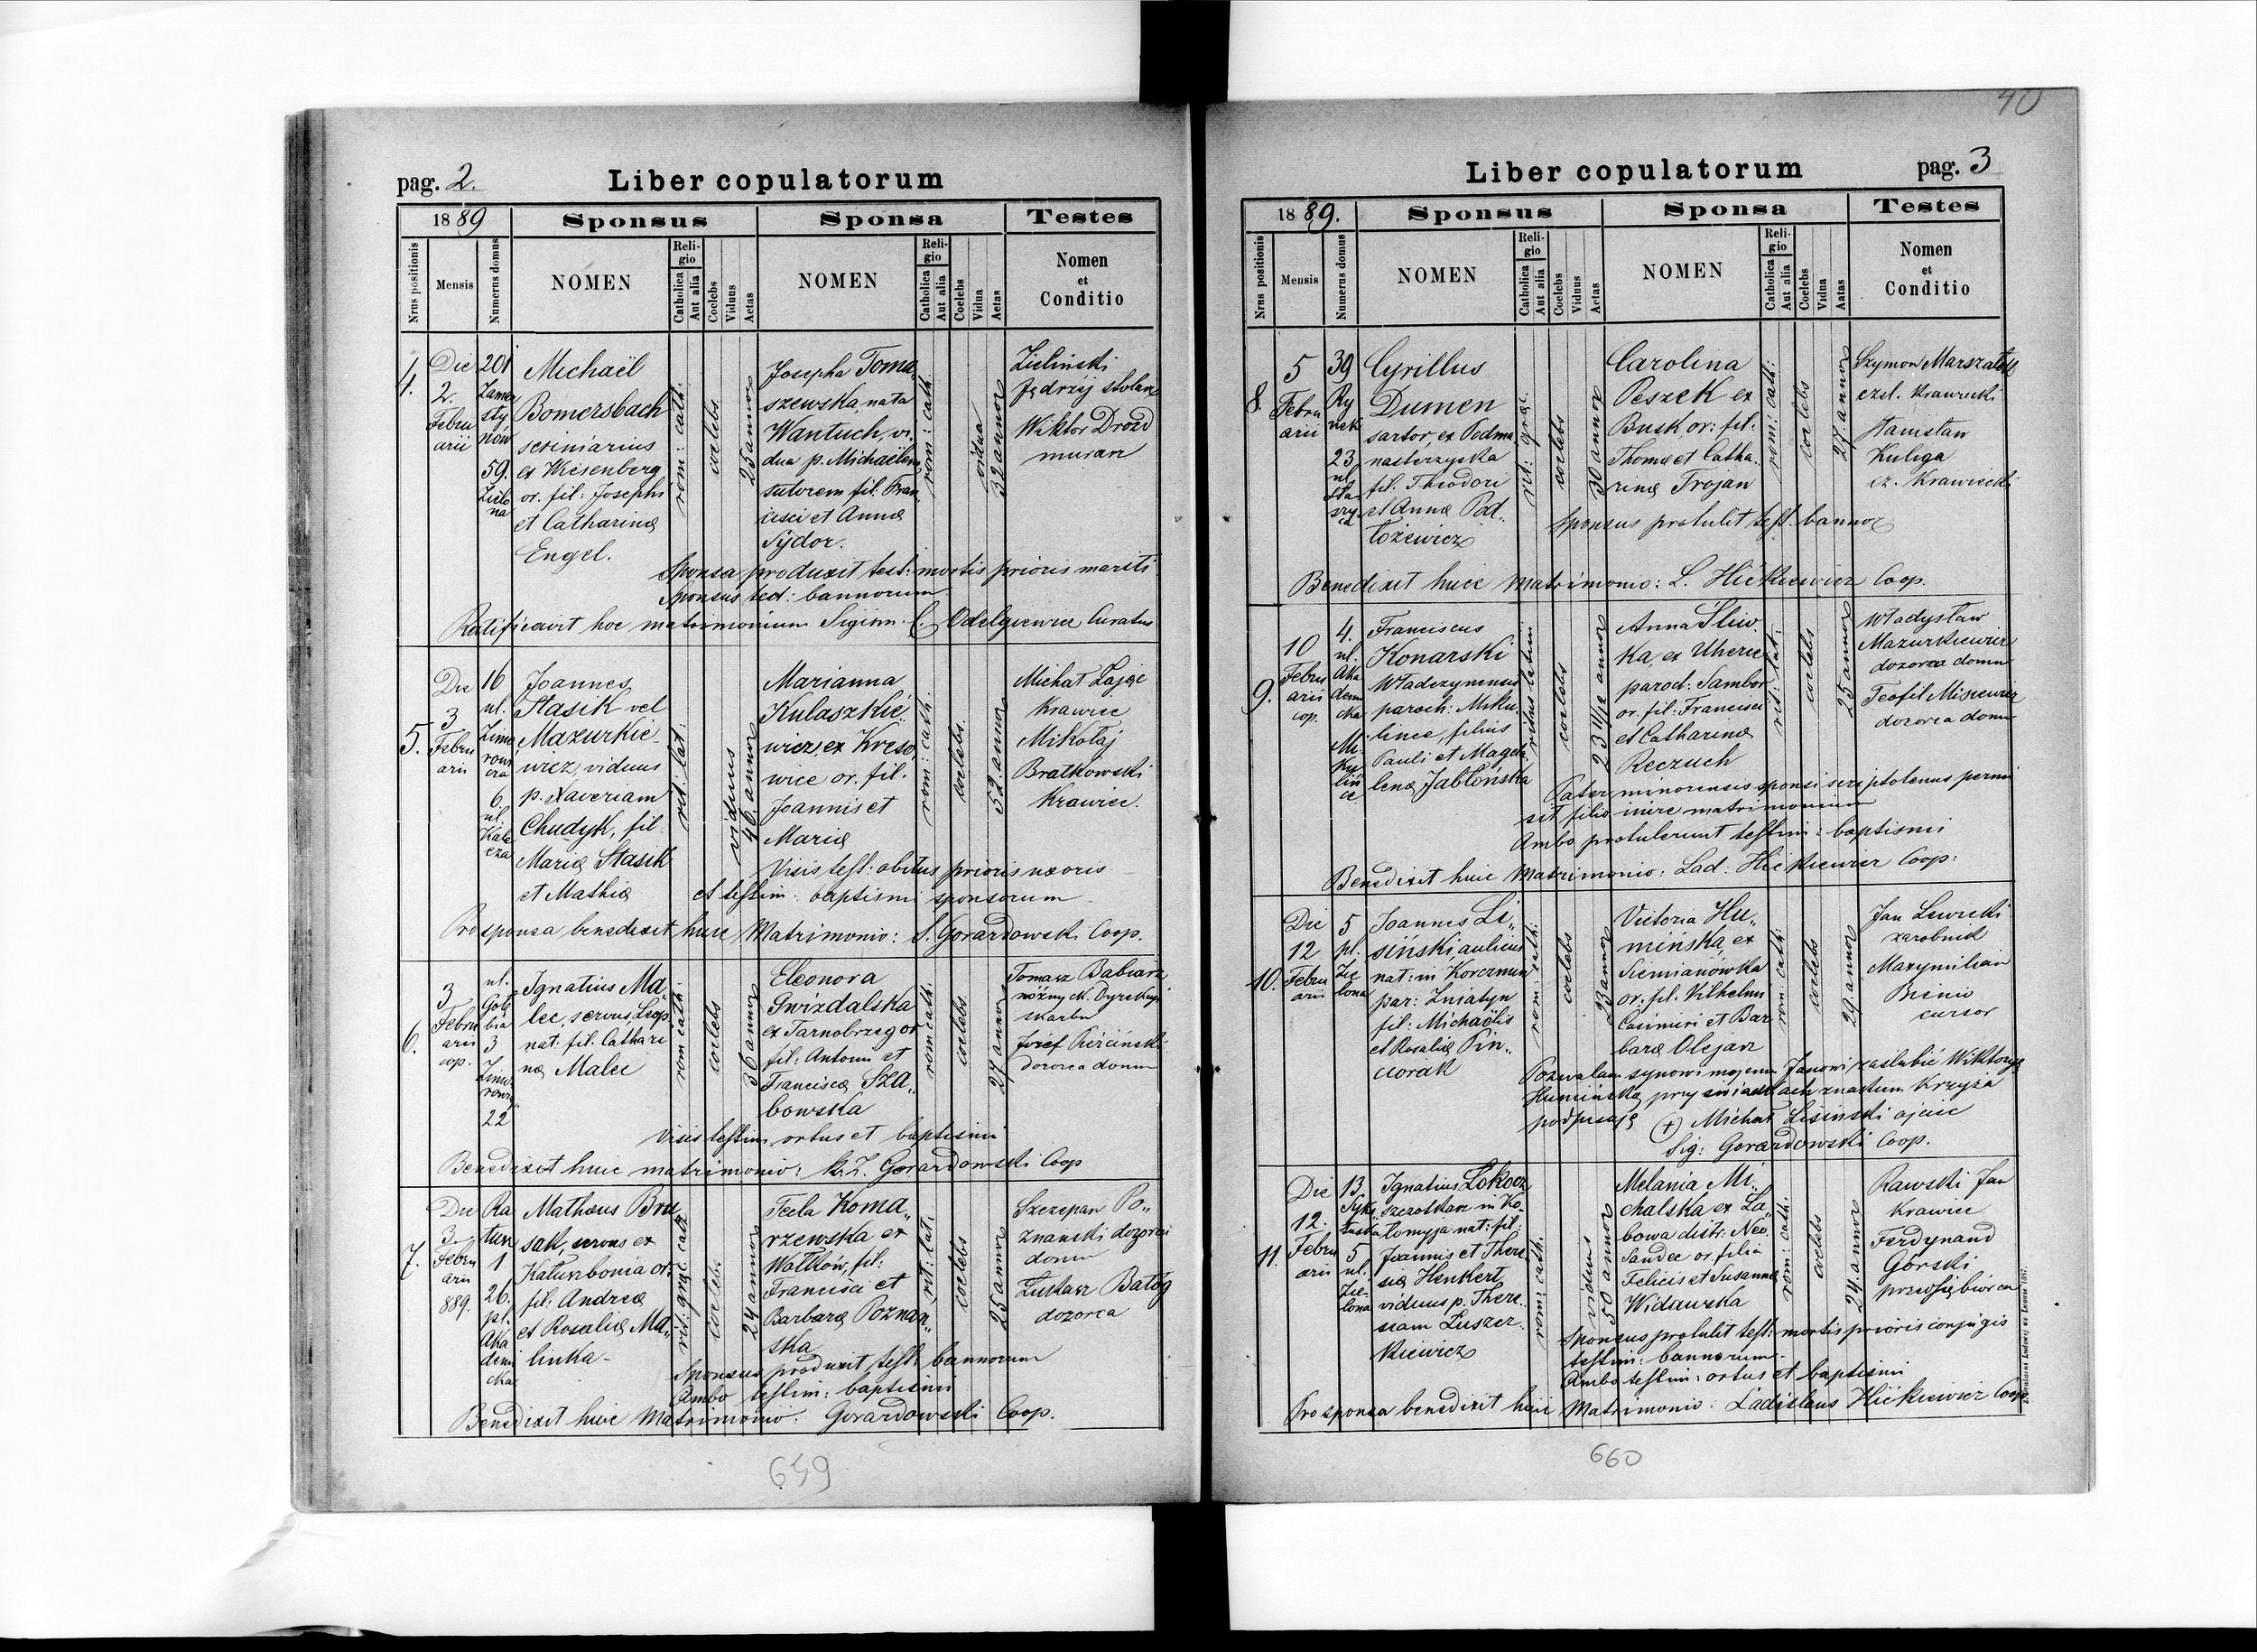 pag. 2.
Liber copulatorum
1889
Sponsus
Sponsa
Testes
Nrus positionis
Mensis
Numerus domus
NOMEN
Religio
Catholica
Aut alia
Coelebs
Viduus
Aetas
NOMEN
Religio
Catholica
Aut alia
Coelebs
Vidua
Aetas
Nomen
et
Conditio
4.
Die
2.
Febru
arii
201
Zamar
sty
nów
59.
Zielo
na
Michaël
Bomersbach
scriniarius
ex Wiesenberg
or. fil: Josephi
et Catharinæ
Engel.
rom: cath:
coelebs
25 annor
Josepha Toma„
szewska, nata
Wantuch, vi„
dua p. Michaëlem
sutorem fil: Fran„
cisci et Annæ
Sydor.
rom: cath:
vidua
32 annor
Zieliński
Jędrzej stolarz
Wiktor Drozd
murarz
Sponsa produxit test: mortis prioris mariti
Sponsus test: bannorum
Ratificavit hoc matrimonium Sigism. Odelgiewicz Curatus
5.
Die
3
Febru
arii
16
ul.
Zimo
rowi
cza
6.
ul.
Kale
cza
Joannes
Stasik vel
Mazurkie„
wicz, viduus
p. Xaveriam
Chudyk, fil.
Mariæ Stasik
et Mathiæ
rit: lat:
viduus
40 annor
Marianna
Kulaszkie„
wicz, ex Kreso„
wice or. fil.
Joannis et
Mariæ
rom: cath:
coelebs
52 annor
Michał Zając
krawiec
Mikołaj
Bratkowski
Krawiec.
Visis test: obitus prioris uxoris
et testim: baptismi sponsorum
Pro sponsa benedixit huic Matrimonio: S. Gorazdowski Coop.
6.
3
Febru
arii
cop.
ul.
Gołę
bia
3
Zimo
rowi
22
Ignatius Ma„
lec, servus, Leop.
nat: fil. Cathari
næ Malec
rom cath:
coelebs
36 annor
Eleonora
Gwizdalska
ex Tarnobrzeg or
fil: Antonii et
Franciscæ Sza„
bowska
rom cath.
coelebs
27 annor
Tomasz Babiarz
woźny ck. Dyrekcyi
skarbu
Józef
dozorca domu
Visis testim ortus et baptismi
Benedixit huic matrimonio: K. Z. Gorazdowski Coop
7.
Die
3
Febru
arii
889.
Ra
tun
1
26.
pl.
Aka
demi
cka
Mathæus Bru
sak, servus ex
or.
fil: Andreæ
et Rosaliæ Ma„
linka
rit: græc. cath
coelebs
24 annor
Tecla Koma„
rzewska ex
Wołków, fil:
Francisci et
Barbaræ Poznań„
ska
rit: lat:
coelebs
25 annor
Szczepan Po„
znański dozorca
domu
Łukasz Batóg
dozorca
Sponsus produxit test: bannorum
Ambo testim: baptismi
Benedixit huic Matrimonio: Gorazdowski Coop.
659
40
Liber copulatorum
pag. 3
1889.
Sponsus
Sponsa
Testes
Nrus positionis
Mensis
Numerus domus
NOMEN
Religio
Catholica
Aut alia
Coelebs
Viduus
Aetas
NOMEN
Religio
Catholica
Aut alia
Coelebs
Vidua
Aatas
Nomen
et
Conditio
8.
5
Febru
arii
39
Ry
nek
23
ul.
Cyrillus
Dumen
sartor, ex Podmo
nasterzyska
fil. Theodori
et Annæ Pod„
łożewicz
rit: græc.
coelebs
30 annor
Carolina
Peszek ex
Busk, or: fil:
Thomæ et Catha„
rinæ Trojan
rom: cath:
coelebs
27 annor
Szymon Marszałek
czel. krawiecki
Stanisław
Kuliga
cz. Krawiecki
Sponsus protulit test. bannor
Benedixit huic Matrimonio: L. Hićkiewicz Coop.
9.
10
Febru
arii
cop.
4.
ul.
Aka
demi
cka
Mi
ku
liń
ce
Franciscus
Konarski
paroch: Miku„
lince, filius
Pauli et Magda
lenæ Jabłońska
ritus latini
coelebs
23 11/12 annor
Anna Śliw„
ka, ex Uherce
paroch: Sambor
or. fil: Francisci
et Catharinæ
Reczuch
rit: lat:
coelebs
25 annor
Władysław
Mazurkiewicz
dozorca domu
Teofil Misiewicz
dozorca domu
Pater minorensis sponsi scriptotenus permi
sit filio inire matrimonium
Ambo protulerunt testim: baptismi
Benedixit huic Matrimonio: Lad. Hićkiewicz Coop:
10.
Die
12
Febru
arii
5
pl.
Zie
lona
Joannes Li„
siński, aulicus
nat: in Korczmin
par: Zniatyn
fil: Michaëlis
et Rosaliæ Pin„
ciorak
rom: cath:
coelebs
23 annor
Victoria Hu„
mińska, ex
Siemianówka
or. fil. Vilhelmi
Casimiri et Bar
baræ Olejarz
rom: cath:
coelebs
29 annor
Jan Lewicki
zarobnik
Maxymilian
cursor
Pozwalam synowi mojemu Janowi zaślubić Wiktoryę
Humińską przy świadkach znakiem Krzyża
podpisuję + Michał Lisiński ojciec
Sig: Gorazdowski Coop.
11.
Die
12.
Febru
arii
13
Syks
tuska
5
ul.
Zie
lona
Ignatius Lokocz
in Ko„
łomyja nat: fil:
Joannis et There
siæ Henkert
viduus p. There„
siam Łuszcz„
kiewicz
rom: cath.
viduus
50 annor
Melania Mi„
chalska ex Ła„
bowa distr: Neo
Sandec or. filia
Felicis et Susannæ
Widawska
rom: cath.
coelebs
24 annor
Rawski Jan
krawiec
Ferdynand
Górski
przedsiębiorca
Sponsus protulit test: mortis prioris conjugis
testim: bannorum
Ambo testim: ortus et baptismi
Pro sponsa benedixit huic Matrimonio: Ladislaus Hićkiewicz Coop.
660